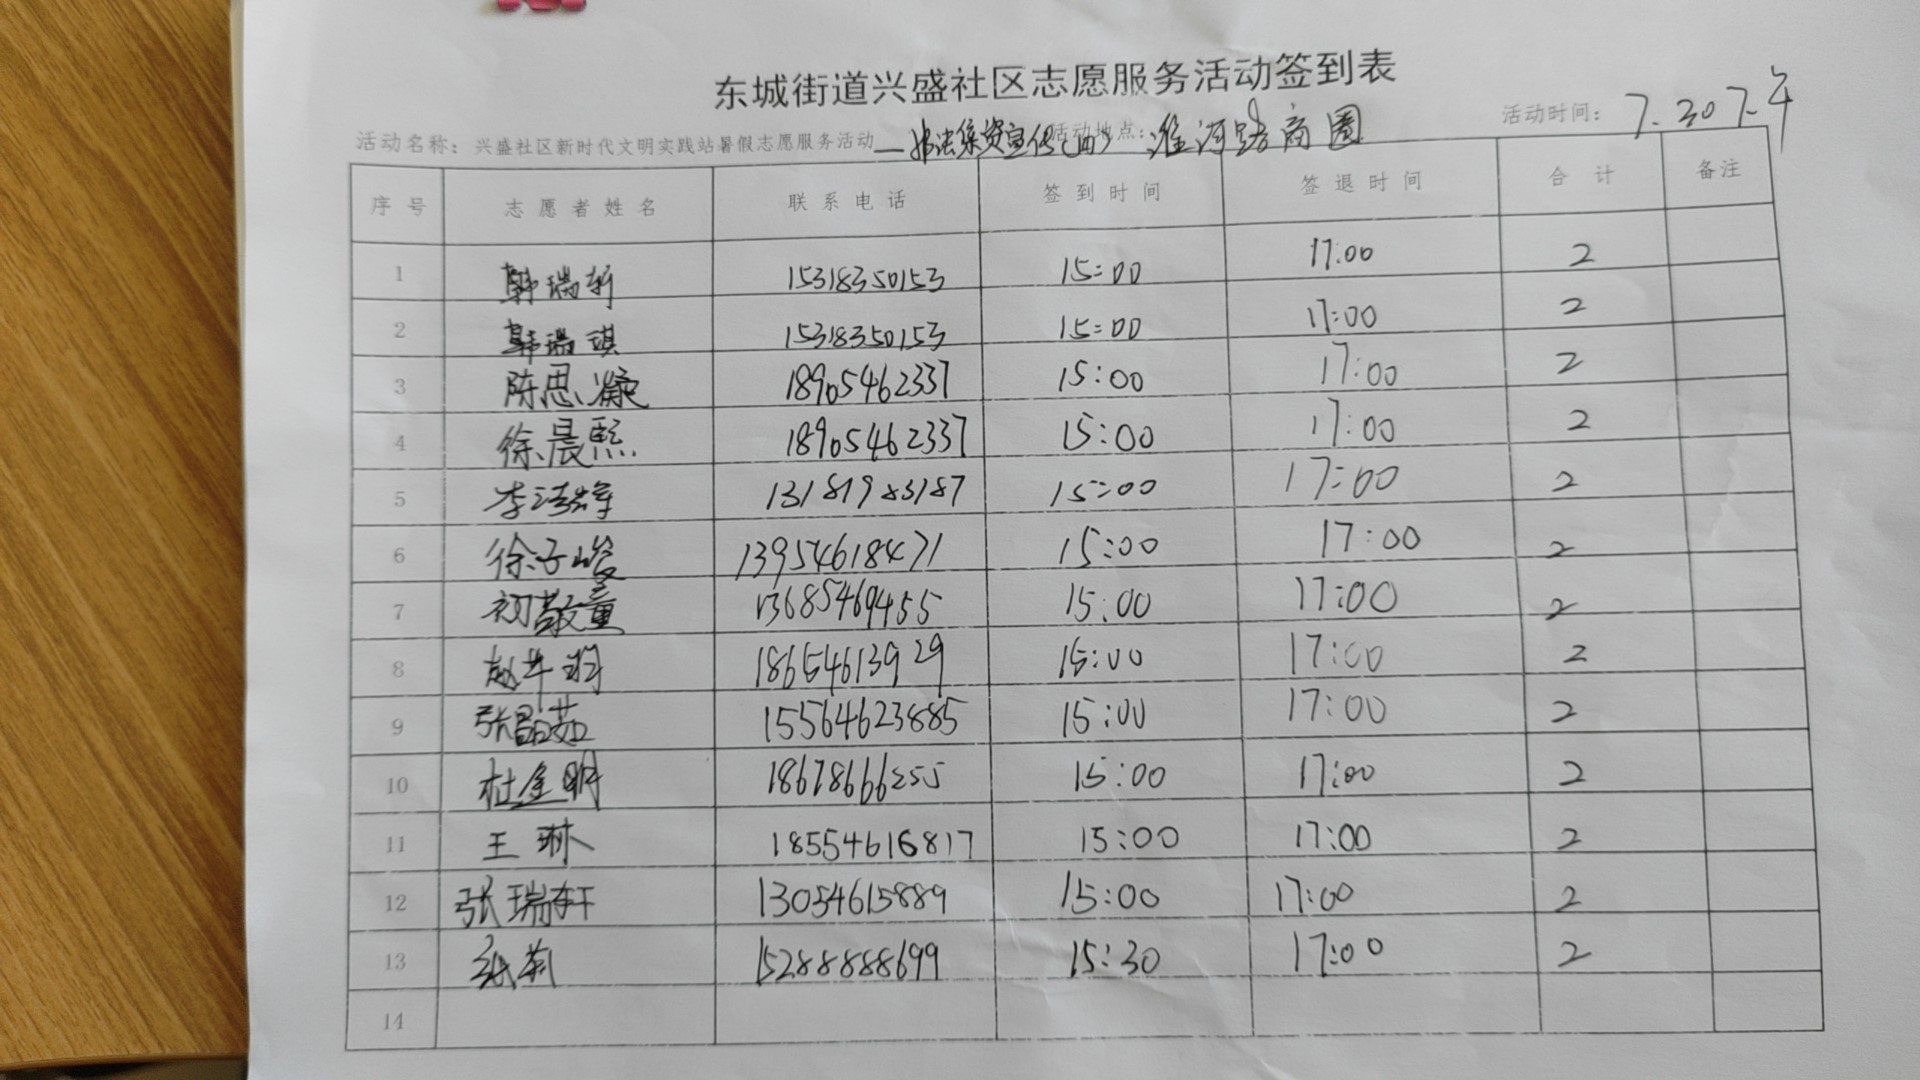 东城街道兴盛社区志愿服务活动签到表
活动名称：兴盛社区新时代文明实践站暑假志愿服务活动—非法集资宣传（四） 活动地点：淮河路商圈 活动时间：7.30 下午
序号 志愿者姓名 联系电话 签到时间 签退时间 合计 备注
1 韩瑞新 15318350153 15:00 17:00 2
2 韩瑞琪 15318350153 15:00 17:00 2
3 陈思凝 18905462337 15:00 17:00 2
4 徐晨熙 18905462337 15:00 17:00 2
5 李 13181983187 15:00 17:00 2
6 徐子峻 13954618471 15:00 17:00 2
7 初敬童 13685469455 15:00 17:00 2
8 赵 18654613929 15:00 17:00 2
9 张晶茹 15564623885 15:00 17:00 2
10 杜金明 18678666255 15:00 17:00 2
11 王琳 18554616817 15:00 17:00 2
12 张瑞轩 13054615889 15:00 17:00 2
13 15288888699 15:30 17:00 2
14